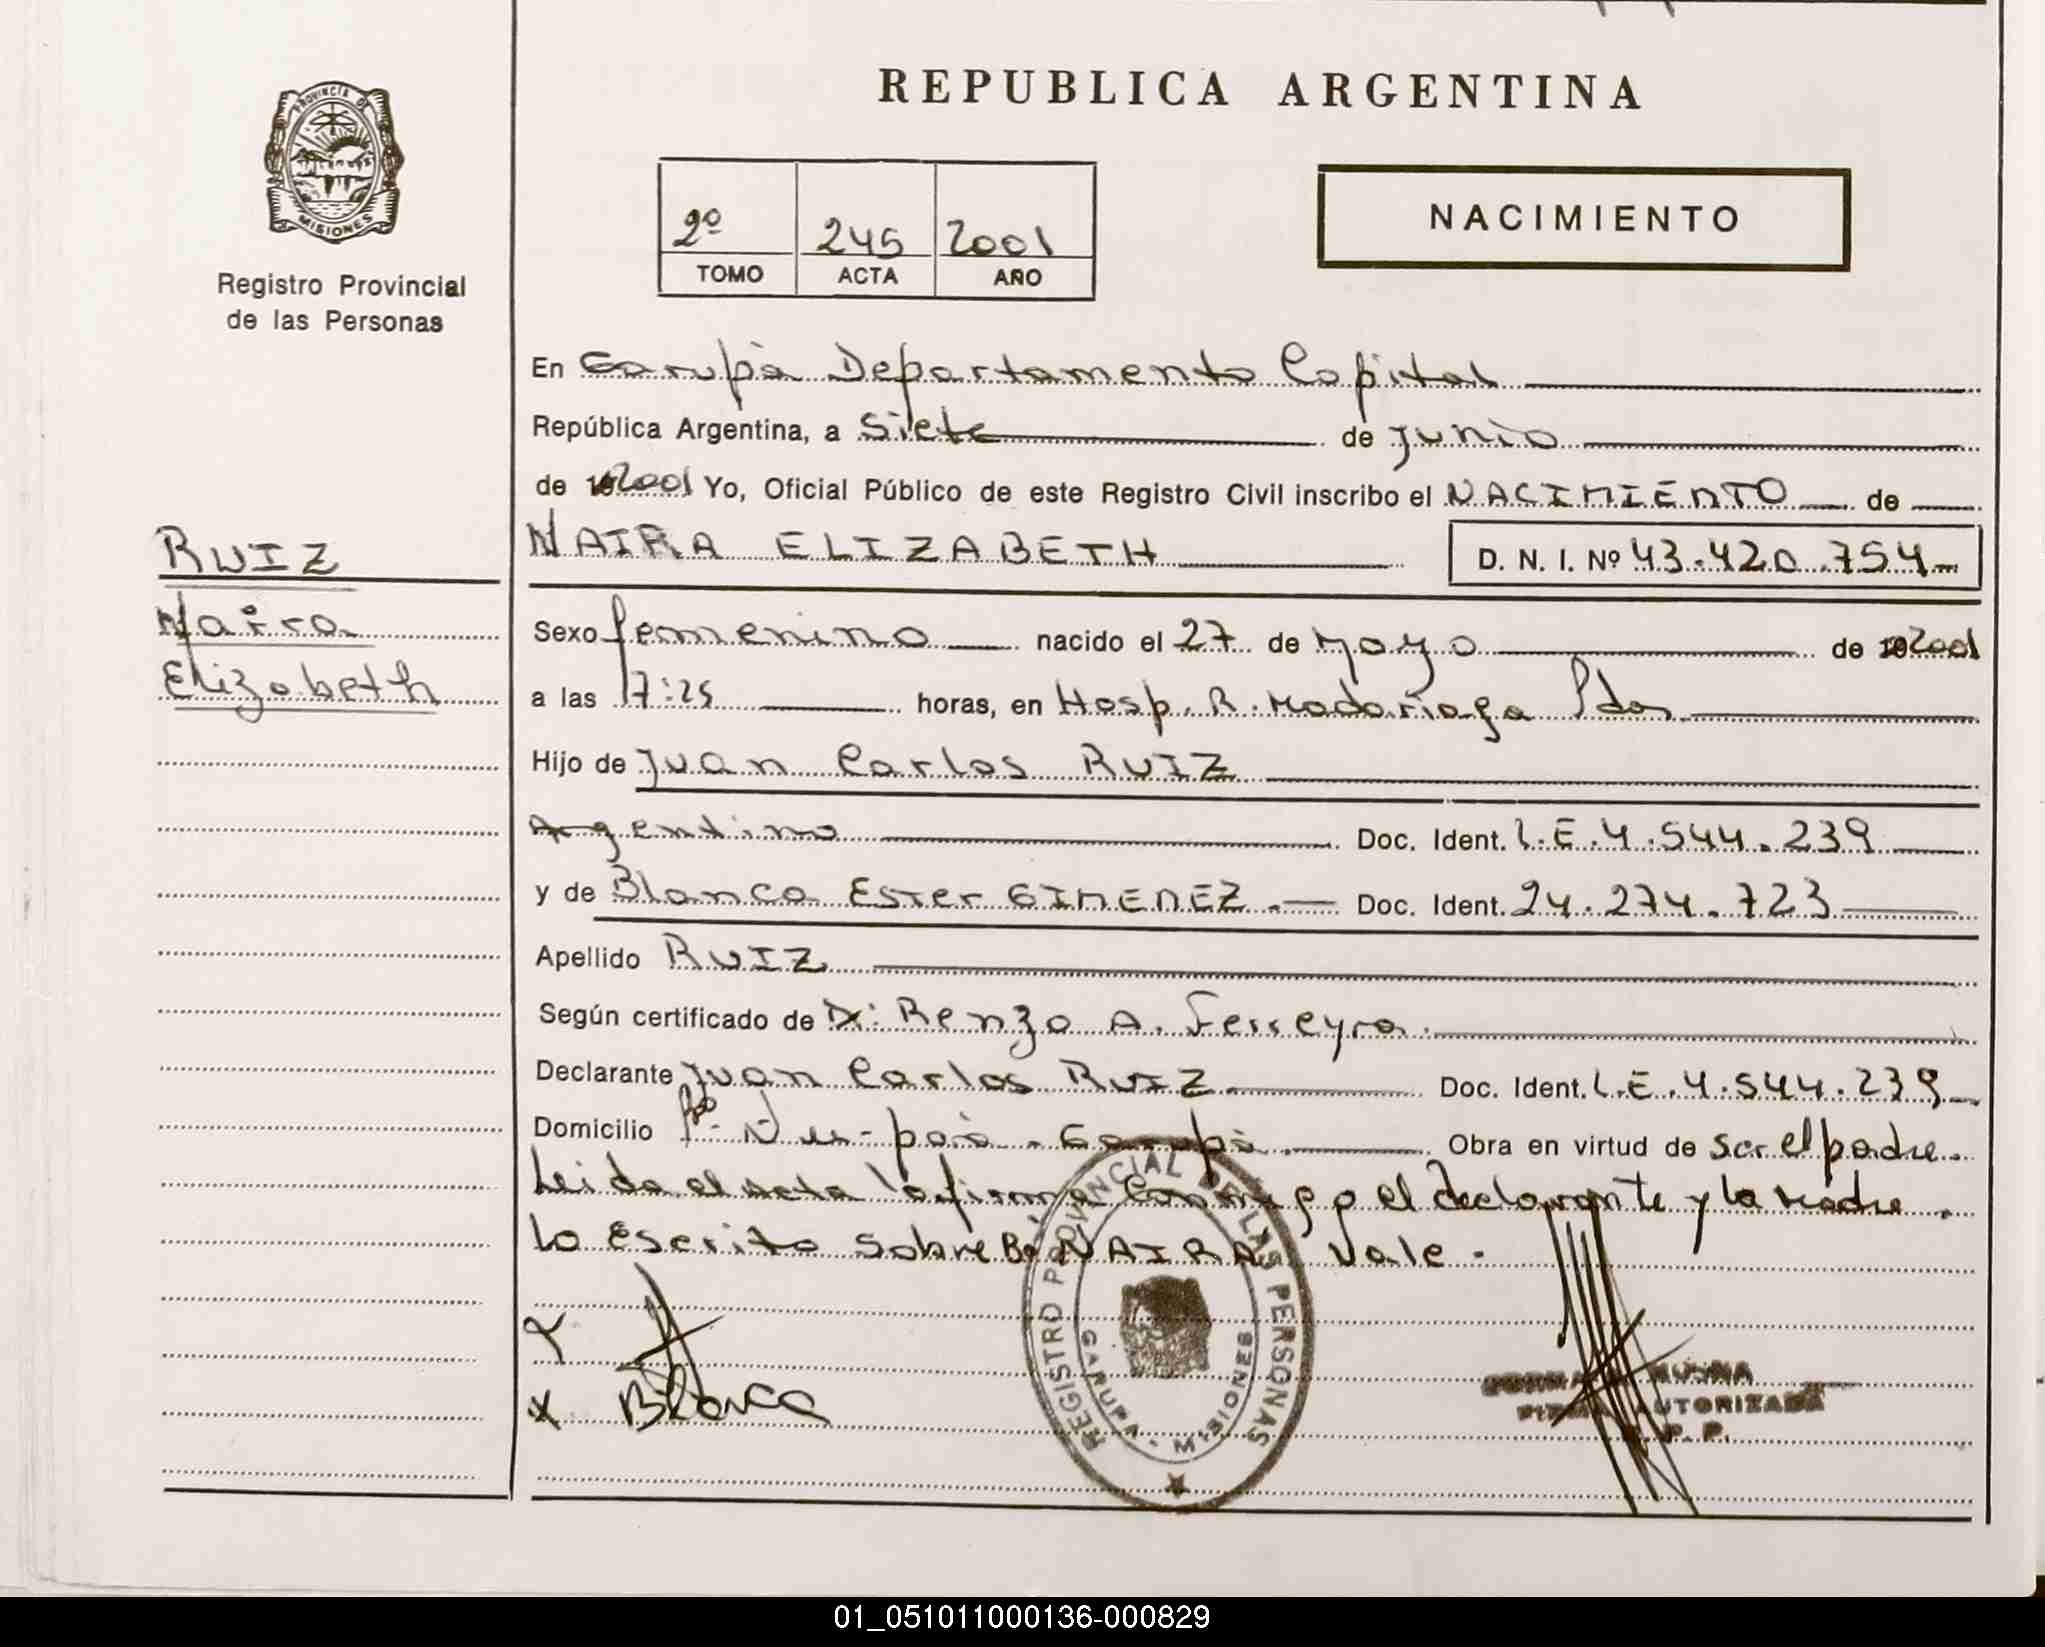 REPUBLICA ARGENTINA
PROVINCIA DE
MISIONES
Registro Provincial
de las Personas
2º 245 2001
TOMO ACTA AÑO
NACIMIENTO
En Garupà Departamento Capital
República Argentina, a Siete de junio
de 2001 Yo, Oficial Público de este Registro Civil inscribo el NACIMIENTO de
RUIZ
Naira
Elizabeth
NAIRA ELIZABETH D. N. I. Nº 43.420.754
Sexo femenino nacido el 27 de Mayo de 2001
a las 17:25 horas, en Hosp. R. Madariaga Pdas
Hijo de Juan Carlos RUIZ
Argentino Doc. Ident. L.E. 4.544.239
y de Blanca Ester GIMENEZ. Doc. Ident. 24.274.723
Apellido RUIZ
Según certificado de Dr: Renzo A. Ferreyra.
Declarante Juan Carlos RUIZ Doc. Ident. L.E. 4.544.239
Domicilio Garupà. Obra en virtud de ser el padre.
Leida el acta la firma conmigo el declarante y la Madre.
lo Escrito sobre NAIRA Vale.
X
X Blanca
REGISTRO PROVINCIAL DE LAS PERSONAS
GARUPA - MISIONES
FIRMA AUTORIZADA
01_051011000136-000829